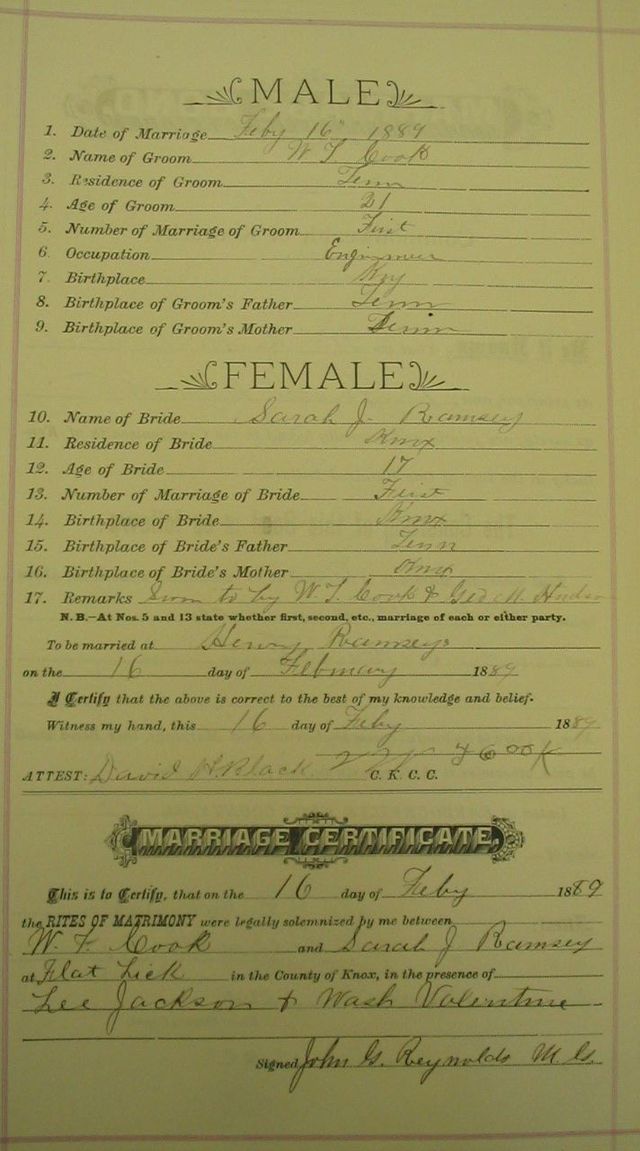 MALE
1. Date of Marriage Feby 16" 1889
2. Name of Groom W F Cook
3. Residence of Groom Tenn
4. Age of Groom 21
5. Number of Marriage of Groom First
6. Occupation Engineer
7. Birthplace Kny
8. Birthplace of Groom's Father Tenn
9. Birthplace of Groom's Mother Tenn
FEMALE
10. Name of Bride Sarah J Ramsey
11. Residence of Bride Knox
12. Age of Bride 17
13. Number of Marriage of Bride First
14. Birthplace of Bride Knox
15. Birthplace of Bride's Father Tenn
16. Birthplace of Bride's Mother Knox
17. Remarks Sworn to by W. F. Cook & Geo M. Hudson
N. B.—At Nos. 5 and 13 state whether first, second, etc., marriage of each or either party.
To be married at Henry Ramseys
on the 16 day of February 1889
I Certify that the above is correct to the best of my knowledge and belief.
Witness my hand, this 16 day of Feby 1889
W F Cook
ATTEST: David H Black C. K. C. C.
MARRIAGE CERTIFICATE.
This is to Certify, that on the 16 day of Feby 1889
the RITES OF MATRIMONY were legally solemnized by me between
W. F. Cook and Sarah J Ramsey
at Flat Lick in the County of Knox, in the presence of
Lee Jackson & Wash Valentine
Signed John G. Reynolds M G